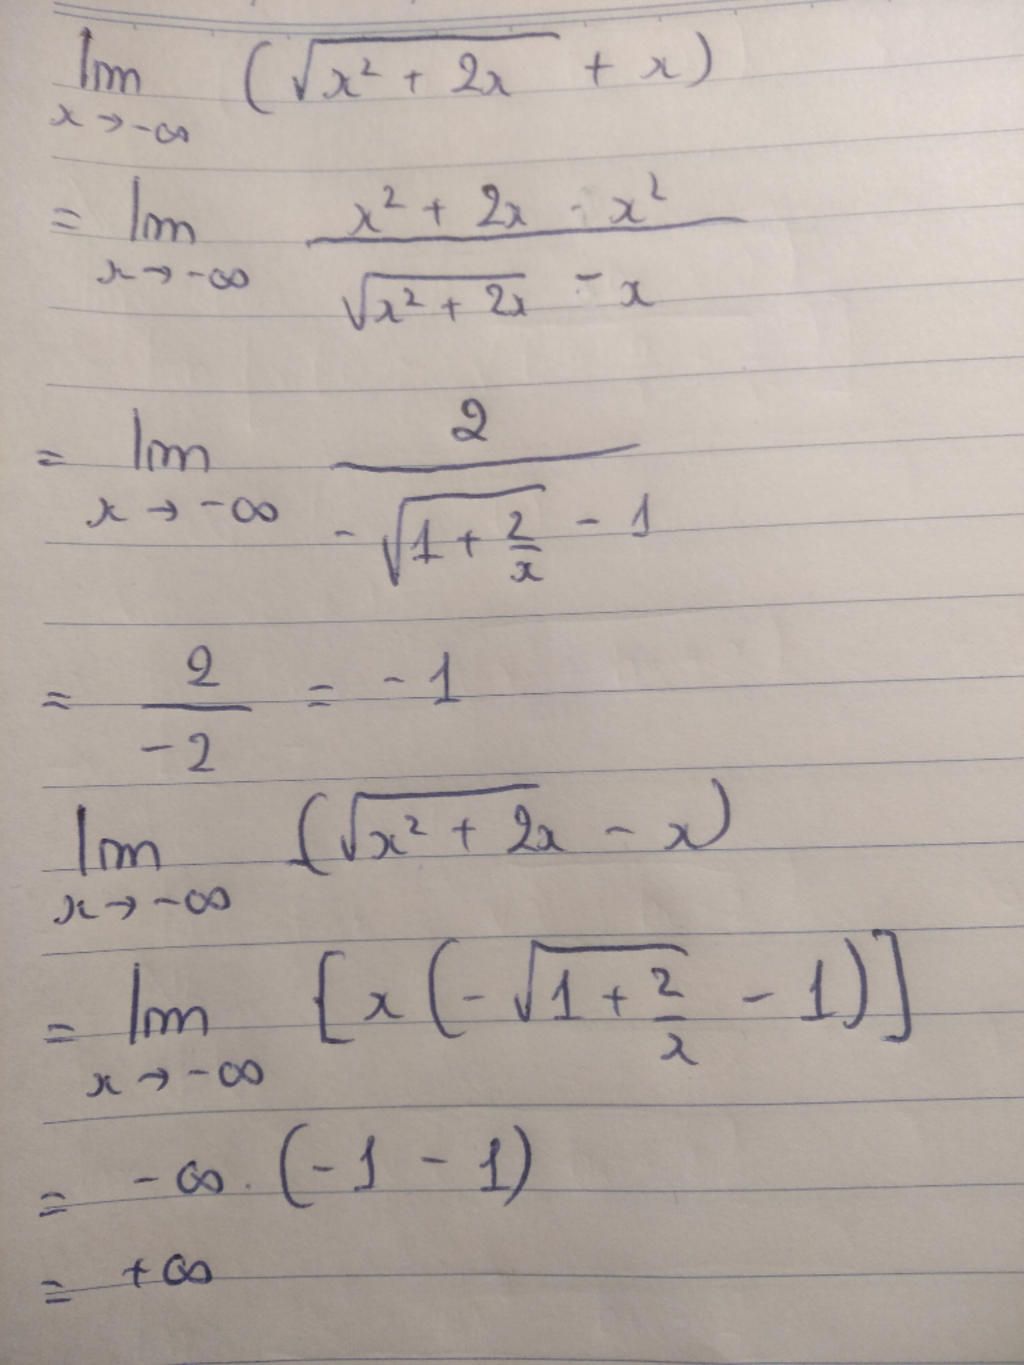 lim (√(x² + 2x) + x)
x → -∞
= lim (x² + 2x - x²) / (√(x² + 2x) - x)
x → -∞
= lim 2 / (-√(1 + 2/x) - 1)
x → -∞
= 2 / -2 = -1
lim (√(x² + 2x) - x)
x → -∞
= lim [x(-√(1 + 2/x) - 1)]
x → -∞
= -∞ . (-1 - 1)
= +∞